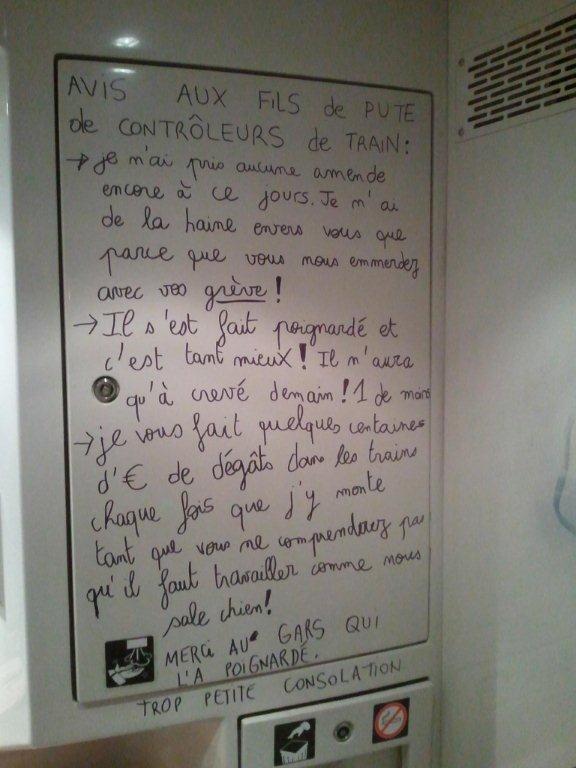 AVIS AUX FILS de PUTE
de CONTRÔLEURS de TRAIN:
→ je n'ai pris aucune amende
encore à ce jours. Je n'ai
de la haine envers vous que
parce que vous nous emmerdez
avec vos grève !
→ Il s'est fait poignardé et
c'est tant mieux ! Il n'aura
qu'à crevé demain ! 1 de moins
→ je vous fait quelques centaines
d'€ de dégâts dans les trains
chaque fois que j'y monte
tant que vous ne comprendrez pas
qu'il faut travailler comme nous
sale chien!
MERCI AU GARS QUI
L'A POIGNARDÉ.
TROP PETITE CONSOLATION